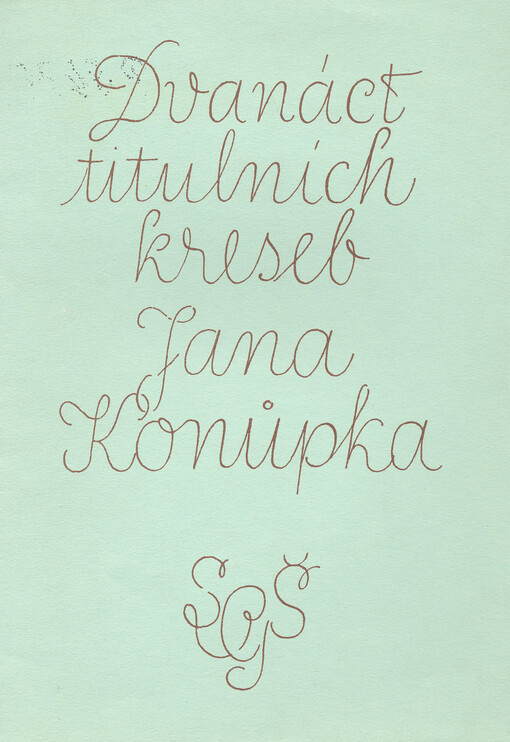 Dvanáct
titulních
kreseb
Jana
Konůpka